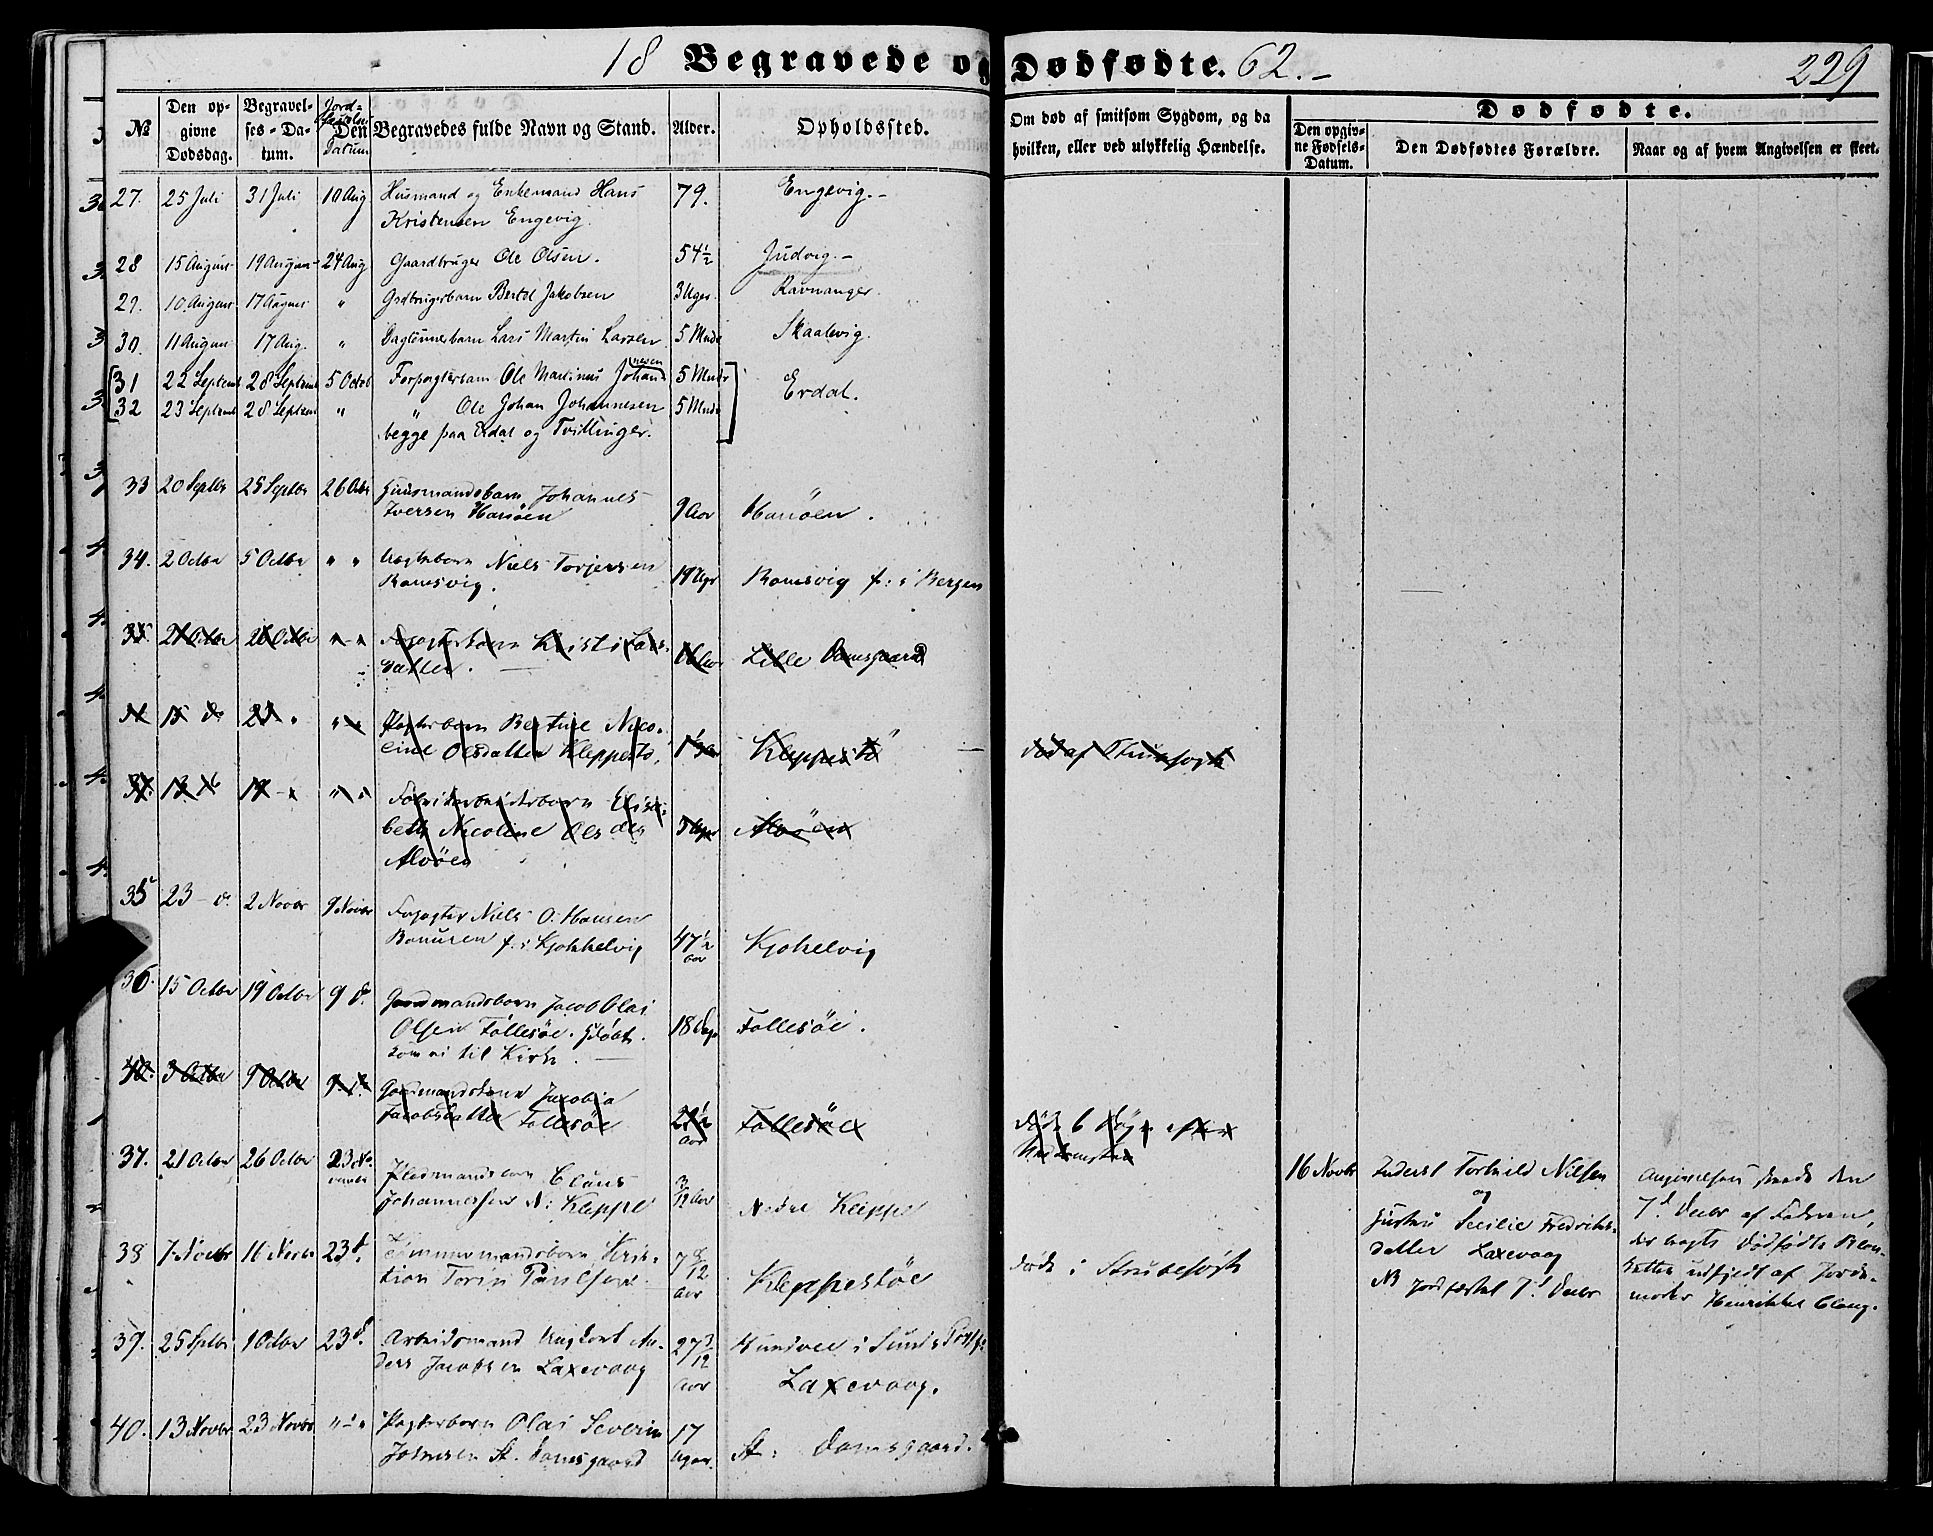 18 Begravede og Dødfødte. 62.-
229
№
Den opgivne Dødsdag.
Begravelses-Datum.
Jord-
Datum
Den Begravedes fulde Navn og Stand.
Alder.
Opholdssted.
Om død af smitsom Sygdom, og da hvilken, eller ved ulykkelig Hændelse.
Dødfødte.
Den opgivne Fødsels-Datum.
Den Dødfødtes Forældre.
Naar og af hvem Angivelsen er skeet.
27. 25 Juli 31 Juli 10 Aug Husmand og Enkemand Hans 79. Engevig.-
Kristensen Engevig.
28 15 August 19 August 24 Aug Gaardbruger Ole Olsen. 54½ Judvig.-
29. 10 August 17 August " Grdbrugerbarn Bertel Jakobsen 3 Uger. Ravnanger.
30. 11 August 17 Aug. " Daglönnerbarn Lars Martin Larsen 5 Mndr Skaalevig.
31 22 Septemb 28 Septemb 5 Octob Forpagterbarn Ole Martinus Johannesen 5 Mndr Erdal.
32 23 Septemb 28 Septemb " " Ole Johan Johannesen 5 Mndr
begge paa Erdal og Tvillinger.
33 20 Septbr 25 Septbr 26 Octbr Huusmandsbarn Johannes
Iversen Hanöen 9 Aar Hanöen.
34. 2 Octbr 5 Octbr " " Niels Torjersen
Ramsvig. 19 Ugr Ramsvig f: i Bergen
35. 21 Octbr 26 Octbr " " Kristi Lars-
datter. Lille Damsgaard
15 do Pagterbarn Bertine Nico-
line Olsdatter Kleppestö, Kleppestö død af Strubehoste
Fabrikarbeiderbarn Elisa-
beth Nicoline Olsdtr Alvöen
Alvöen
35 23 - do 2 Novbr 9 Novbr Forpagter Niels O. Hansen
f. i Kjökkelvig 47½ Aar Kjökelvig
36. 15 Octbr 19 Octbr 9 do. Gaardmandsbarn Jacob Olai
Olsen Follesöe. Hjdöbt. 18 Dage Follesöe.
kom ei til Kirke.
40. 3 Octbr 9 Octbr Gaardmandskone Jacobia
Jacobsdatter Follesöe Aar Follesöe Døde 6 efter
37. 21 Octbr 26 Octbr 23 No-
vember Pladsmandsbarn Claus
Johannessen N: Kleppe 3/12 Aar Nedre Kleppe
16 Novbr Inderst Torkild Nilsen
og
Hustru Secilie Fredriks-
datter Laxevaag
NB Jordfæstet 7d Decbr
Angivelsen skeede den
7d Decbr af Faderen,
der bragte Dødfødte Blan-
ketten udfyldt af Jorde-
moder Henrikke Clang.
38 7 Novbr 16 Novbr 23 d. Tømmermandsbarn Kris-
tian Torin Paulsen 7 8/12 Aar Kleppestöe døde i Strubehoste
39. 25 Septbr 1 Octbr 23 d. Arbeidsmand Ungkarl An-
ders Jacobsen Laxevaag 27 3/12 Aar i Sunds
Laxevaag.
40. 13 Novbr 23 Novbr " " Pagterbarn Olai Severin
Johnsen St. Damsgaard 17 Uger. St: Damsgaard.